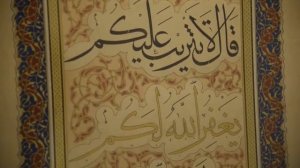 قال لا تثريب عليكم
يغفر الله لكم